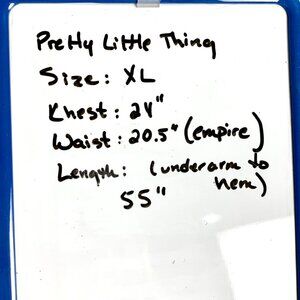 Pretty Little Thing
Size: XL
Khest: 24"
Waist: 20.5" (empire)
Length: (underarm to
hem)
55"